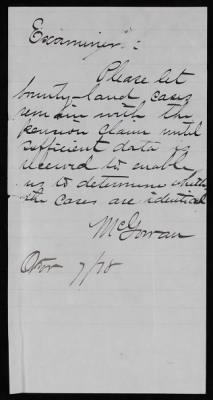 Examiner:
Please let
bounty-land cases
remain with the
pension claim until
sufficient data is
received to enable
us to determine whether
the cases are identical
McGowan
7/18